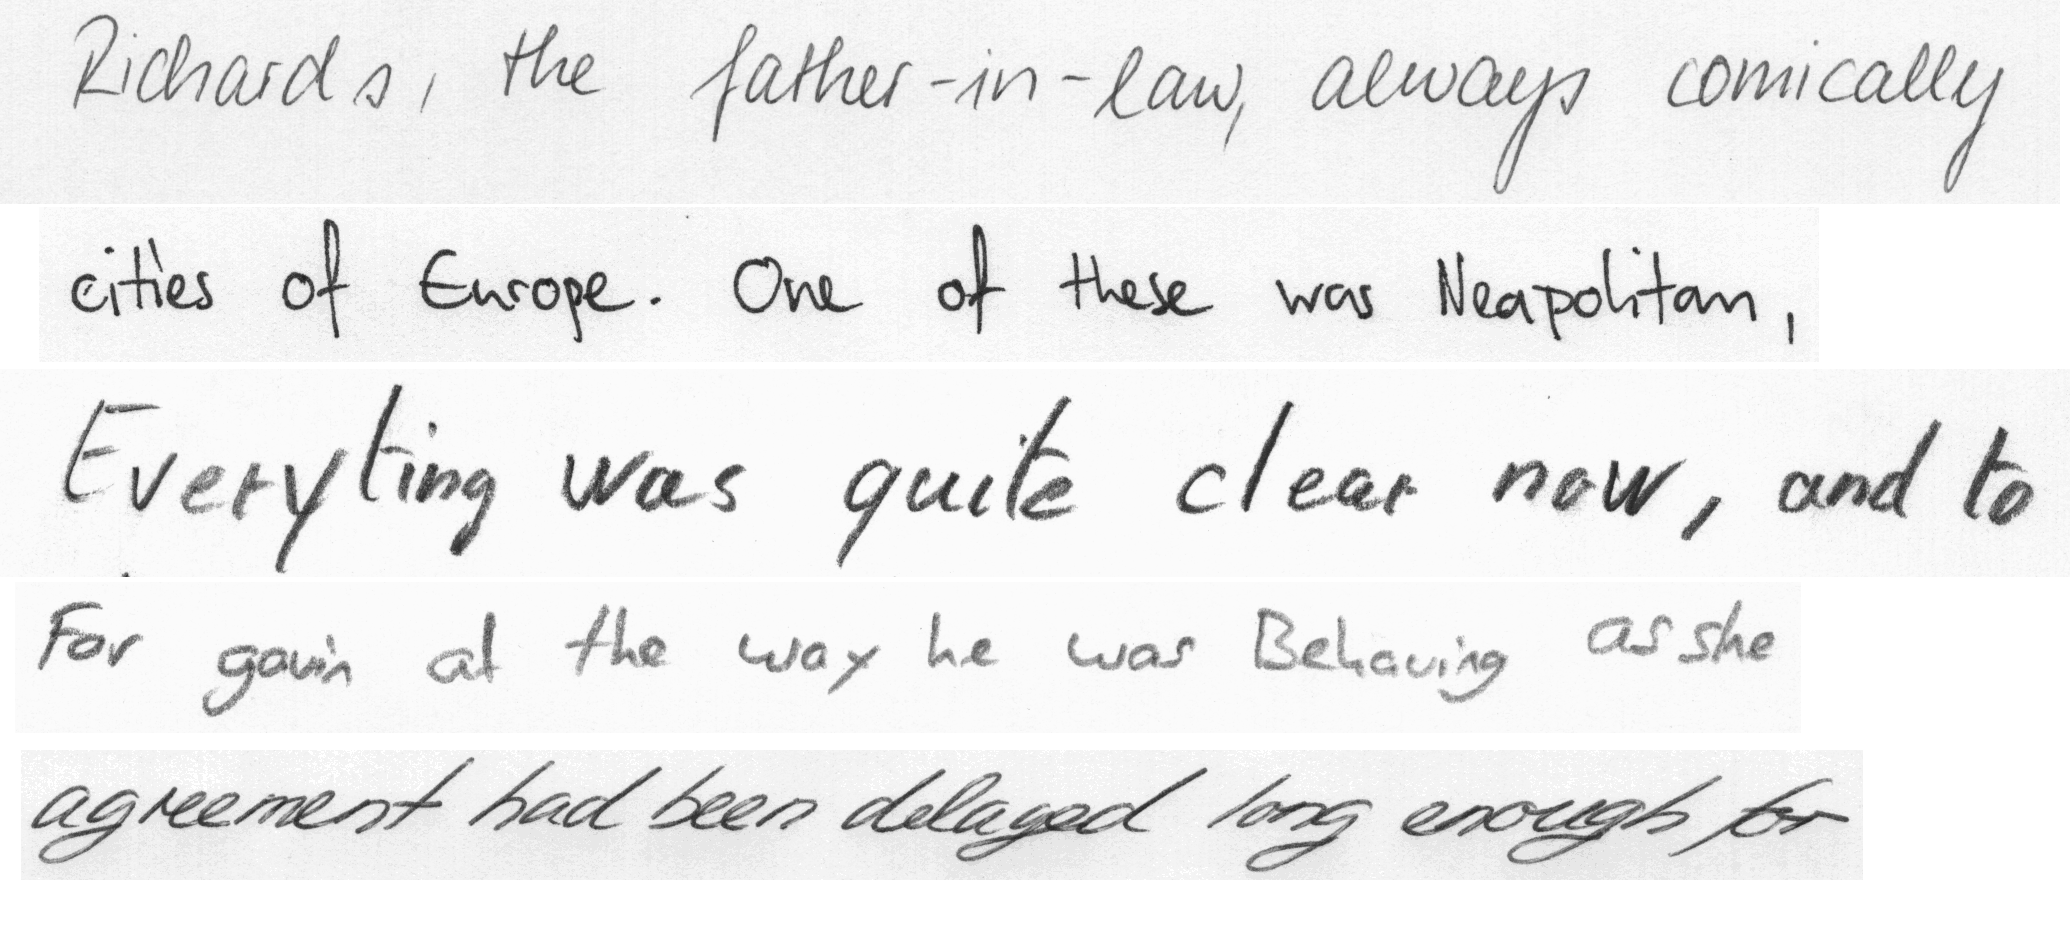 Richards, the father-in-law, always comically
cities of Europe. One of these was Neapolitan,
Everyting was quite clear now, and to
For gavin at the way he was Behaving as she
agreement had been delayed long enough for